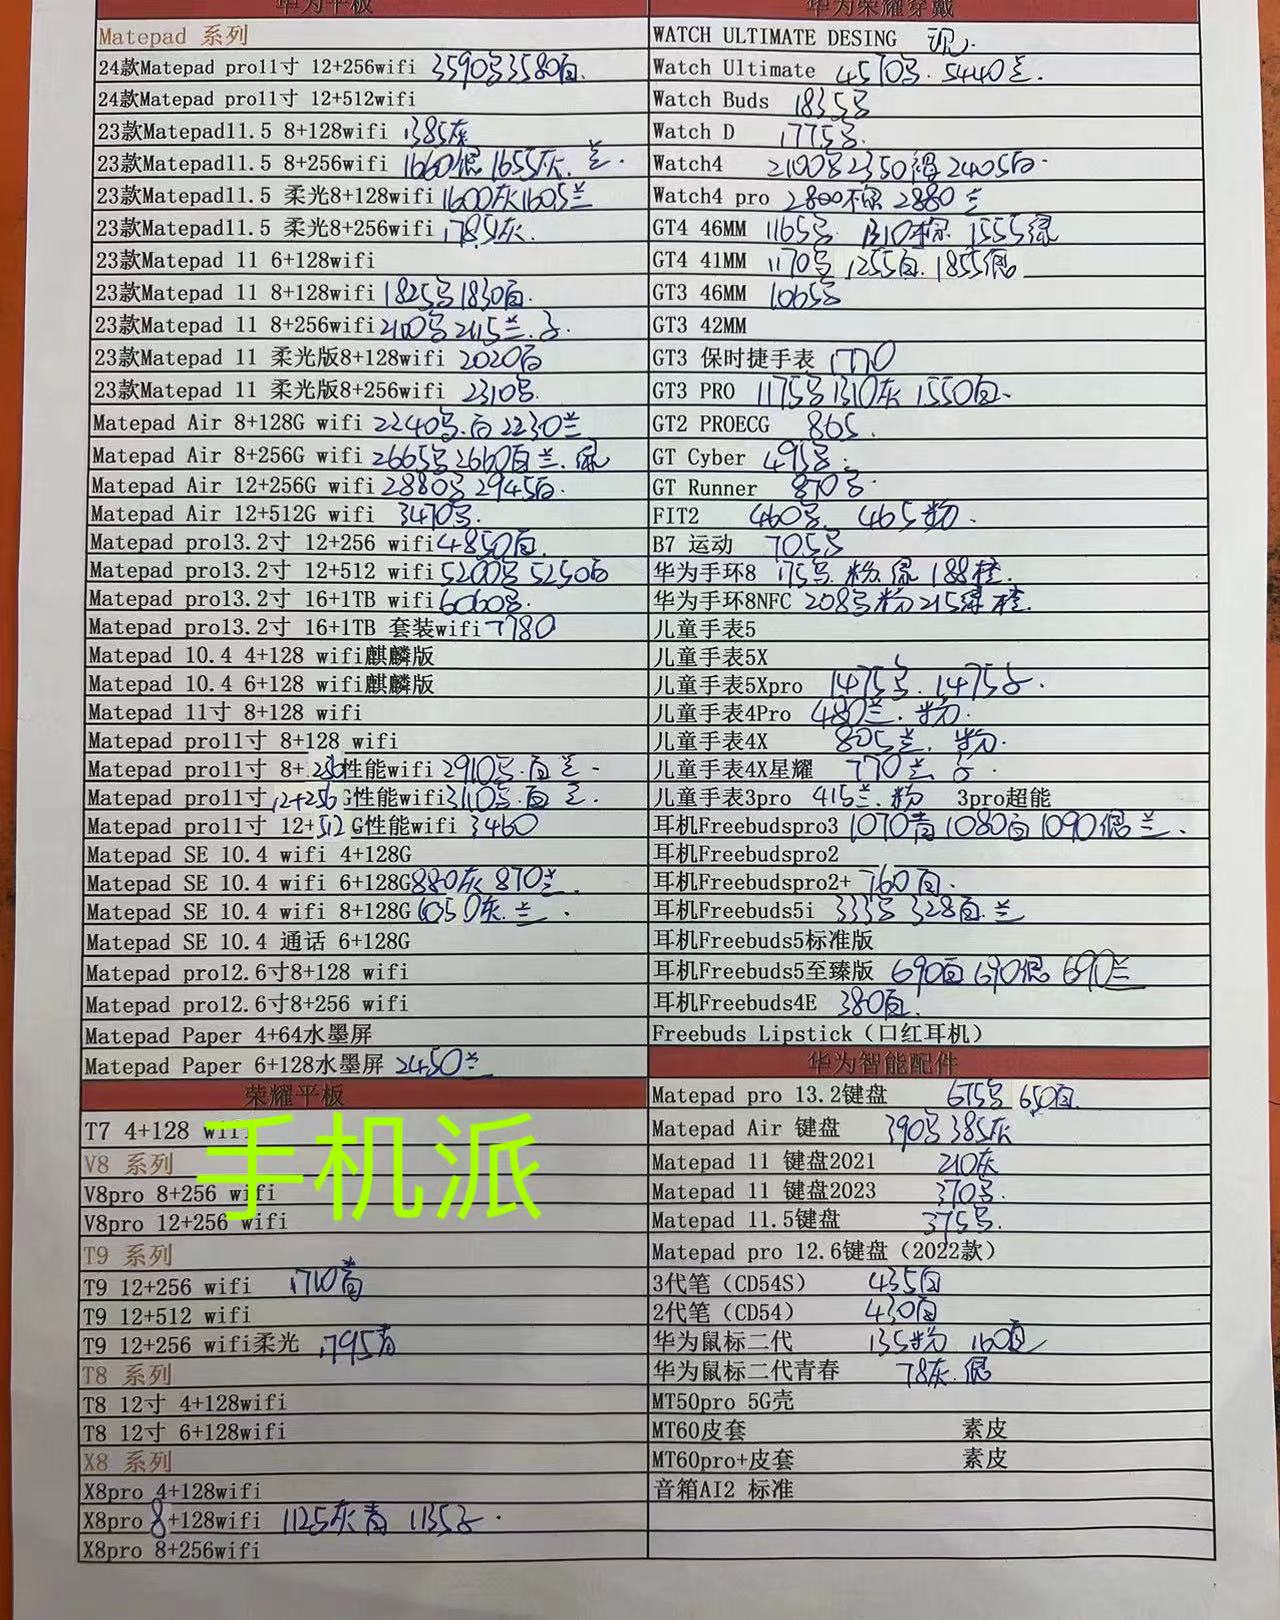 华为平板
Matepad 系列
24款Matepad pro11寸 12+256wifi 3590 3580白
24款Matepad pro11寸 12+512wifi
23款Matepad11.5 8+128wifi 1385灰
23款Matepad11.5 8+256wifi 1660银 1655灰.兰.
23款Matepad11.5 柔光8+128wifi 1600灰1605兰
23款Matepad11.5 柔光8+256wifi 1785灰.
23款Matepad 11 6+128wifi
23款Matepad 11 8+128wifi 1825 1830白.
23款Matepad 11 8+256wifi 2100 2115兰.
23款Matepad 11 柔光版8+128wifi 2020白
23款Matepad 11 柔光版8+256wifi 2310
Matepad Air 8+128G wifi 2240 .白 2230兰
Matepad Air 8+256G wifi 2665 2660白 兰.
Matepad Air 12+256G wifi 2880 2945白.
Matepad Air 12+512G wifi 3470
Matepad pro13.2寸 12+256 wifi 4850白.
Matepad pro13.2寸 12+512 wifi 5200 5250白
Matepad pro13.2寸 16+1TB wifi 6060
Matepad pro13.2寸 16+1TB 套装wifi 7780
Matepad 10.4 4+128 wifi麒麟版
Matepad 10.4 6+128 wifi麒麟版
Matepad 11寸 8+128 wifi
Matepad pro11寸 8+128 wifi
Matepad pro11寸 8+256性能wifi 2910 .白 兰.
Matepad pro11寸 12+256G性能wifi 3110 .白 兰.
Matepad pro11寸 12+512G性能wifi 3460
Matepad SE 10.4 wifi 4+128G
Matepad SE 10.4 wifi 6+128G 880灰 870兰.
Matepad SE 10.4 wifi 8+128G 1050灰.兰.
Matepad SE 10.4 通话 6+128G
Matepad pro12.6寸8+128 wifi
Matepad pro12.6寸8+256 wifi
Matepad Paper 4+64水墨屏
Matepad Paper 6+128水墨屏 2450兰
荣耀平板
T7 4+128 wifi
手机派
V8 系列
V8pro 8+256 wifi
V8pro 12+256 wifi
T9 系列
T9 12+256 wifi 1710青
T9 12+512 wifi
T9 12+256 wifi柔光 1795青
T8 系列
T8 12寸 4+128wifi
T8 12寸 6+128wifi
X8 系列
X8pro 4+128wifi
X8pro 8+128wifi 1125灰 青 1135
X8pro 8+256wifi
华为荣耀穿戴
WATCH ULTIMATE DESING
Watch Ultimate 4570 . 5440兰.
Watch Buds 1835
Watch D 1775
Watch4 2100 2350 2405白.
Watch4 pro 2800 2880兰
GT4 46MM 1165 1310棕. 1555绿
GT4 41MM 1170 1255白. 1855银
GT3 46MM 1065
GT3 42MM
GT3 保时捷手表 1770
GT3 PRO 1175 1310灰 1550白.
GT2 PROECG 865.
GT Cyber 495
GT Runner 870
FIT2 460 465粉.
B7 运动 705
华为手环8 175 .粉. 188橙.
华为手环8NFC 208 粉 215绿 橙.
儿童手表5
儿童手表5X
儿童手表5Xpro 1475 . 1475
儿童手表4Pro 480兰. 粉.
儿童手表4X 805兰. 粉.
儿童手表4X星耀 770兰
儿童手表3pro 415兰.粉 3pro超能
耳机Freebudspro3 1070青 1080白 1090银 兰.
耳机Freebudspro2
耳机Freebudspro2+ 760白.
耳机Freebuds5i 333 328白.兰
耳机Freebuds5标准版
耳机Freebuds5至臻版 690白 690银 690兰
耳机Freebuds4E 380白.
Freebuds Lipstick（口红耳机）
华为智能配件
Matepad pro 13.2键盘 675 650白.
Matepad Air 键盘 390 385灰
Matepad 11 键盘2021 210灰
Matepad 11 键盘2023 370
Matepad 11.5键盘 375
Matepad pro 12.6键盘（2022款）
3代笔（CD54S） 435白
2代笔（CD54） 430白
华为鼠标二代 135粉 160白
华为鼠标二代青春 78灰.银
MT50pro 5G壳
MT60皮套 素皮
MT60pro+皮套 素皮
音箱AI2 标准